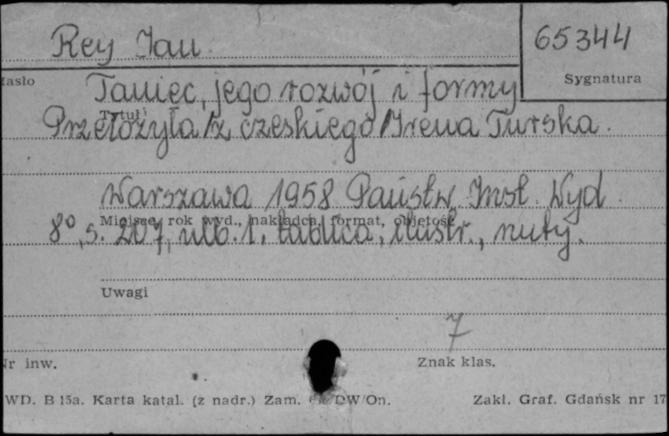 Rey Jan
65344
Hasło
Sygnatura
Taniec, jego rozwój i formy
Tytuł
Przełożyła /z czeskiego/ Irena Turska.
Warszawa 1958 Państw. Inst. Wyd.
Miejsce, rok wyd., nakładca, format, objętość
8°, s. 207, nlb. 1, tablica, ilustr., nuty.
Uwagi
7
Nr inw.
Znak klas.
WD. B 15a. Karta katal. (z nadr.) Zam. DW/On.
Zakł. Graf. Gdańsk nr 17